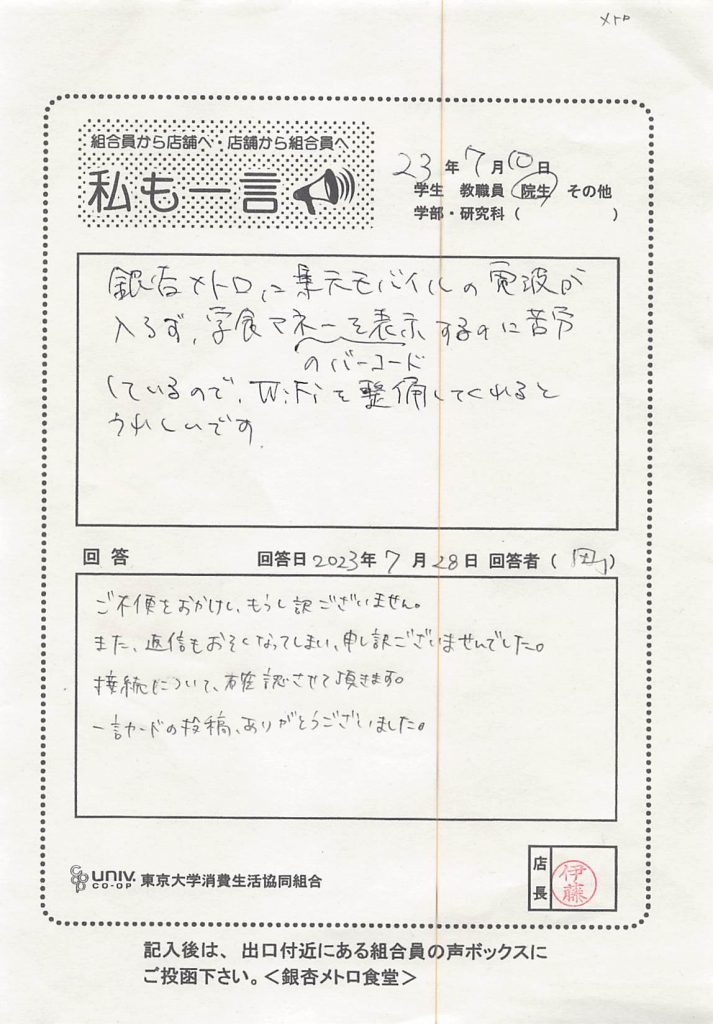 メトロ
組合員から店舗へ・店舗から組合員へ
私も一言
23年7月10日
学生 教職員 院生 その他
学部・研究科( )
銀杏メトロに楽天モバイルの電波が
入らず、学食マネーを表示するのに苦労
のバーコード
しているので、WiFiを整備してくれると
うれしいです.
回答 回答日2023年7月28日 回答者( 岡 )
ご不便をおかけし、もうし訳ございません。
また、返信もおそくなってしまい、申し訳ございませんでした。
接続について、確認させて頂きます。
一言カードの投稿、ありがとうございました。
UNIV. CO-OP 東京大学消費生活協同組合
店長 伊藤
記入後は、出口付近にある組合員の声ボックスに
ご投函下さい。<銀杏メトロ食堂>